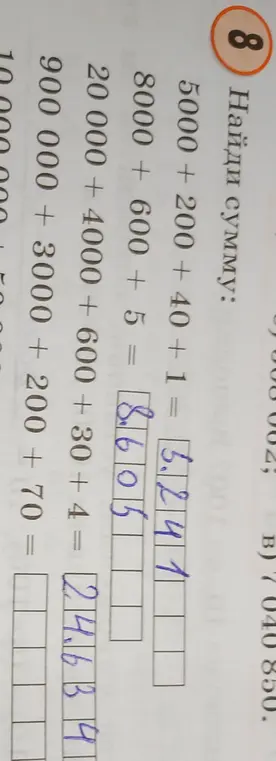 в) 7 040 850.
8 Найди сумму:
5000 + 200 + 40 + 1 = 5.241
8000 + 600 + 5 = 8.605
20 000 + 4000 + 600 + 30 + 4 = 24.634
900 000 + 3000 + 200 + 70 =